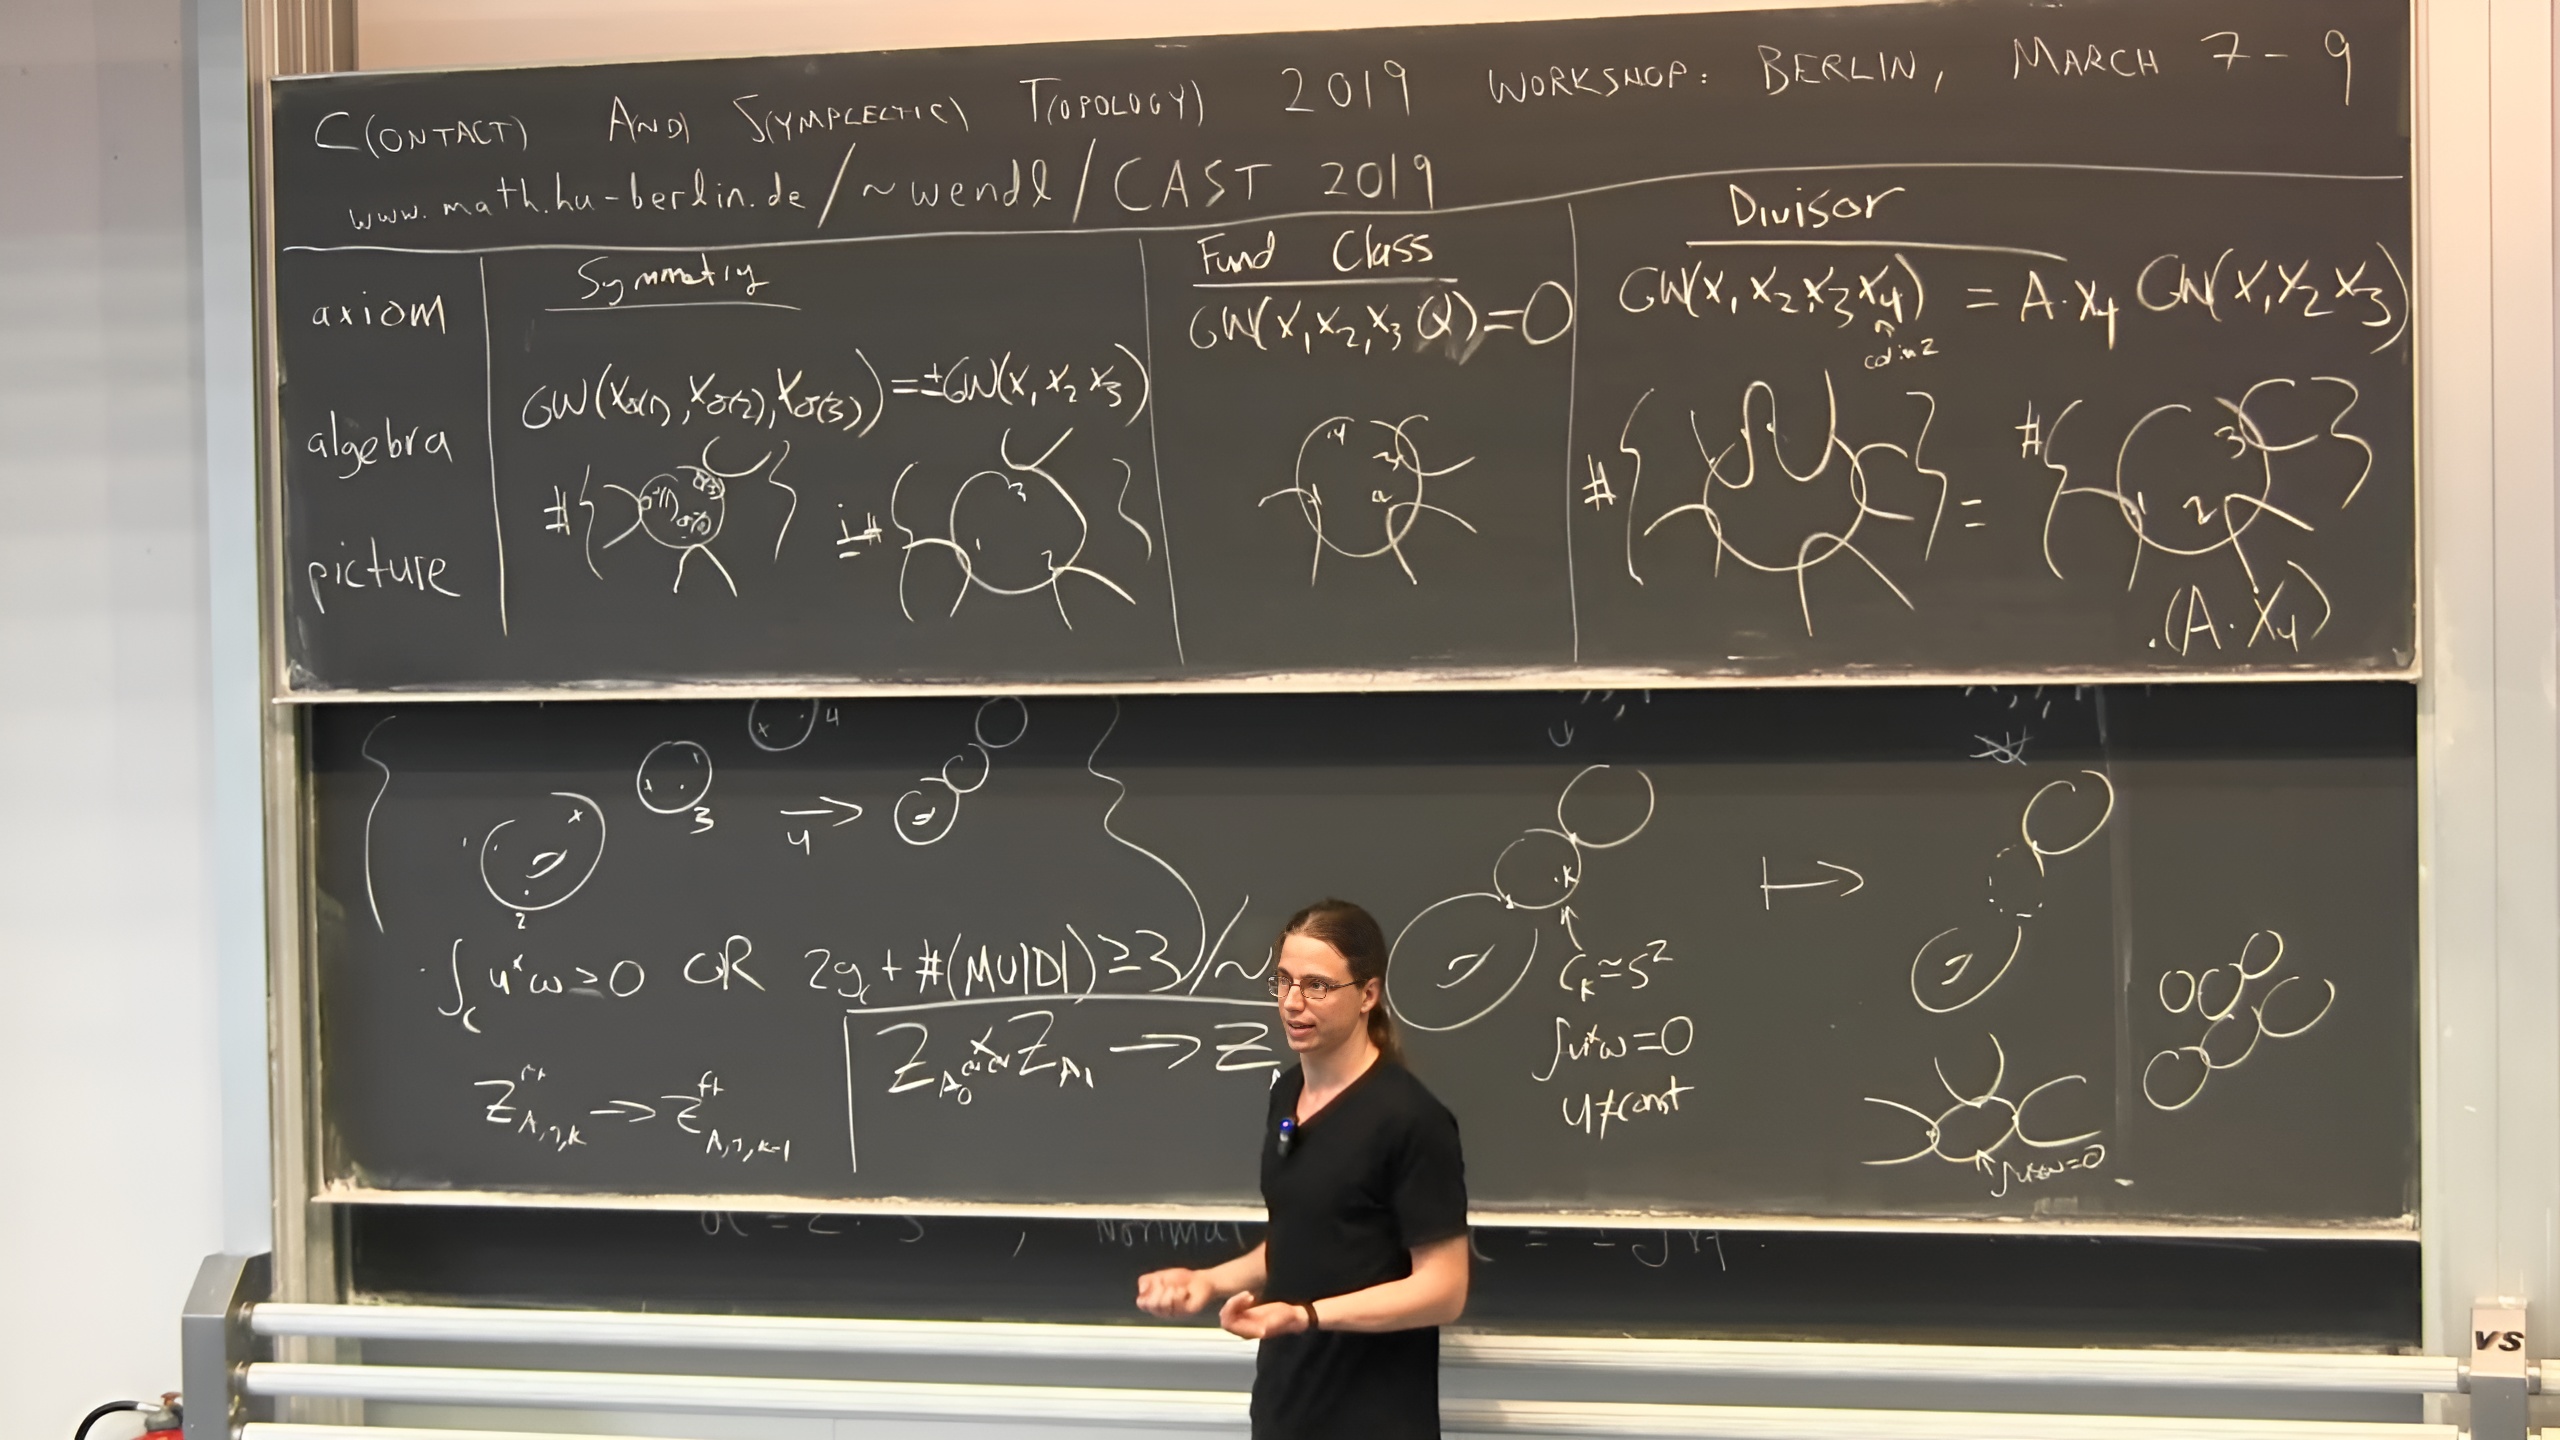 C(ONTACT) AND S(YMPLECTIC) T(OPOLOGY) 2019 WORKSHOP: BERLIN, MARCH 7-9
www.math.hu-berlin.de/~wendl/CAST 2019
axiom
algebra
picture
Symmetry
GW(X_σ(1), X_σ(2), X_σ(3)) = ±GW(X_1 X_2 X_3)
#{ σ(1) σ(2) σ(3) } = ± #{ 1 2 3 }
Fund Class
GW(X_1, X_2, X_3 Q) = 0
4 3 1 2
Divisor
GW(X_1 X_2 X_3 X_4) = A·X_4 GW(X_1 X_2 X_3)
codim 2
#{ } = #{ 1 2 3 }
·(A·X_4)
4
3
2
u
∫_C u*ω > 0 OR 2g_c + #(M∪|D|) ≥ 3 /~
Z_A,η,k → Z^ft_A,η,k-1
Z_A_0 × Z_A_1 → Z
k
C_k ≃ S²
∫u*ω = 0
u ≠ const
∫u*ω = 0
, Normal
VS